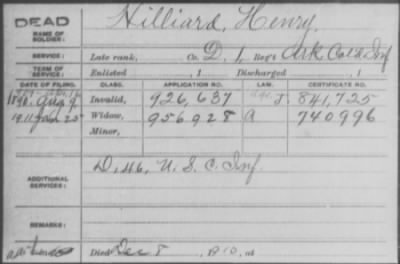 DEAD
Hilliard, Henry.
NAME OF SOLDIER:
SERVICE: Late rank, Co. D, 1, Reg't Ark Cold Inf
TERM OF SERVICE: Enlisted , 1 Discharged , 1
DATE OF FILING. CLASS. APPLICATION NO. LAW. CERTIFICATE NO.
1890. Aug 9 Invalid, 926,637 J. 841,725
1911 Jan 25 Widow, 956928 A 740996
Minor,
ADDITIONAL SERVICES: D, 46, U.S.C. Inf.
REMARKS:
Died Dec 8, 1910, at